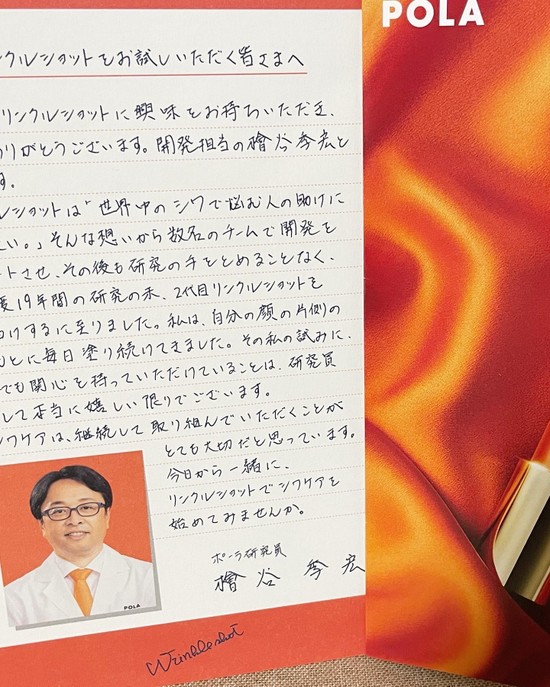 POLA
ンクルショットをお試しいただく皆さまへ
リンクルショットに興味をお持ちいただき、
りがとうございます。開発担当の檜谷季宏と
す。
ルショットは「世界中のシワで悩む人の助けに
い。」そんな想いから数名のチームで開発を
ートさせ、その後も研究の手をとめることなく、
19年間の研究の末、2代目リンクルショットを
けするに至りました。私は、自分の顔の片側の
とに毎日塗り続けてきました。その私の試みに、
でも関心を持っていただけていることは、研究員
して本当に嬉しい限りでございます。
ワケアは、継続して取り組んでいただくことが
とても大切だと思っています。
今日から一緒に、
リンクルショットでシワケアを
始めてみませんか。
ポーラ研究員
檜谷 季宏
POLA
Wrinkle shot